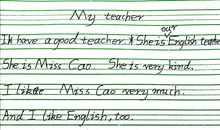 My teacher
I have a good teacher. She is our English teache
She is Miss Cao. She is very kind.
I like Miss Cao very much.
And I like English, too.